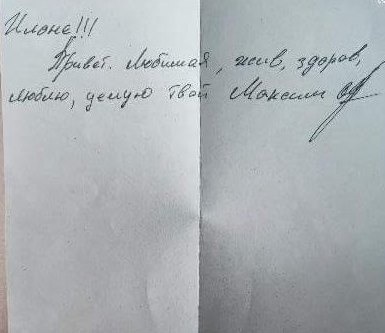 Илоне!!!
Привет. Любимая, жив, здоров,
люблю, целую твой Максим